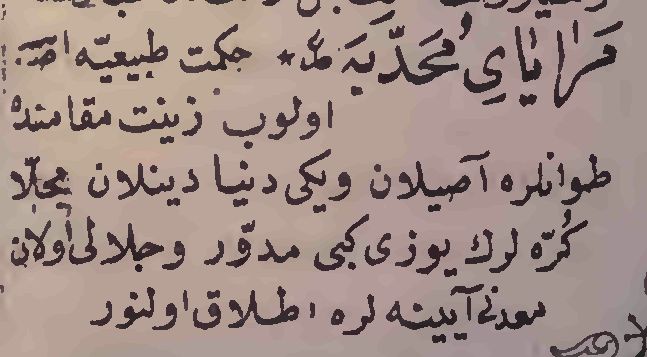 مَرَايَاىِ مُحَدَّبَه ع * حكمت طبيعيّه اصـ
اولوب زينت مقامنده
طوانلره آصيلان ويكى دنيا دينلان مجلّا
كُرّه لرك يوزى كبى مدوّر وجلالى اولان
معدنى آيينه لره اطلاق اولنور